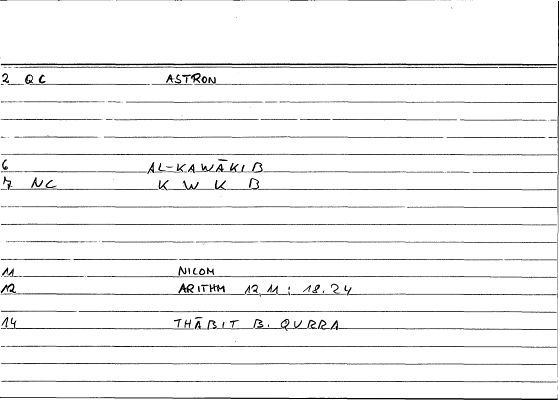 2 QC ASTRON
6 AL-KAWĀKIB
7 NC K W K B
11 NICOM
12 ARITHM 12,11 ; 18.24
14 THĀBIT B. QURRA